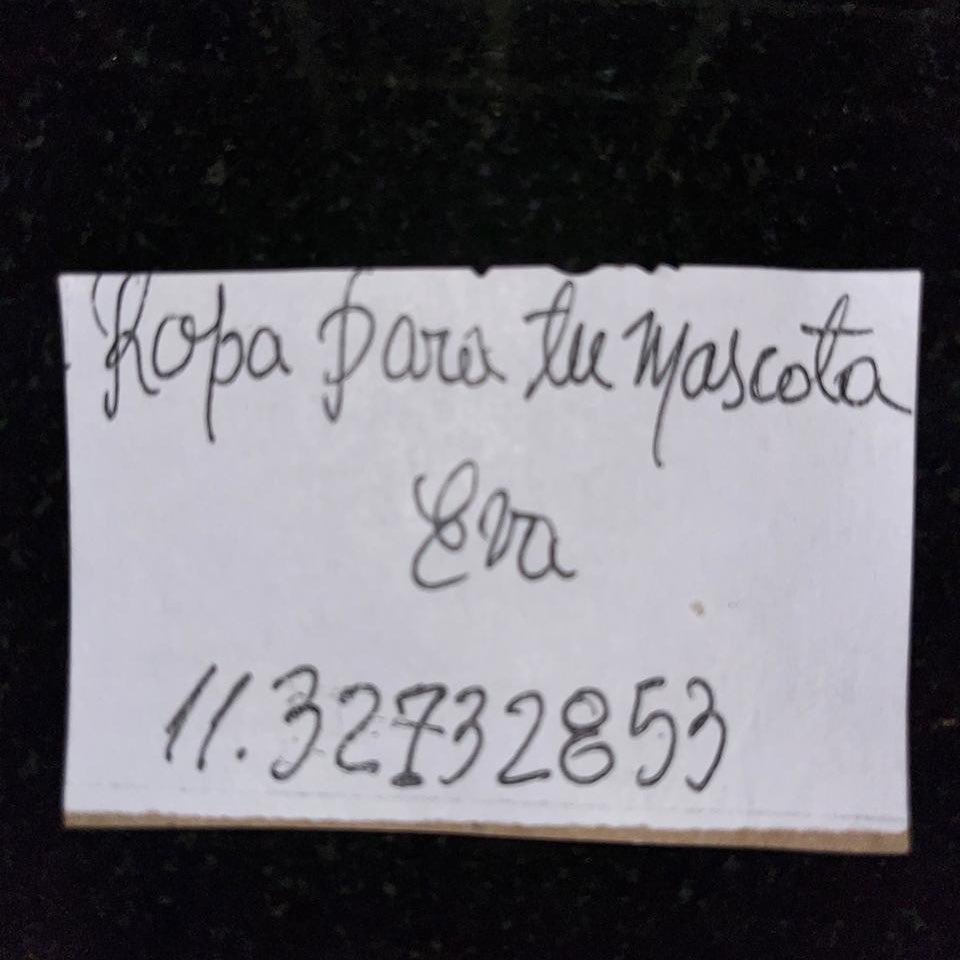 Ropa Para tu Mascota
Eva
11.32732853